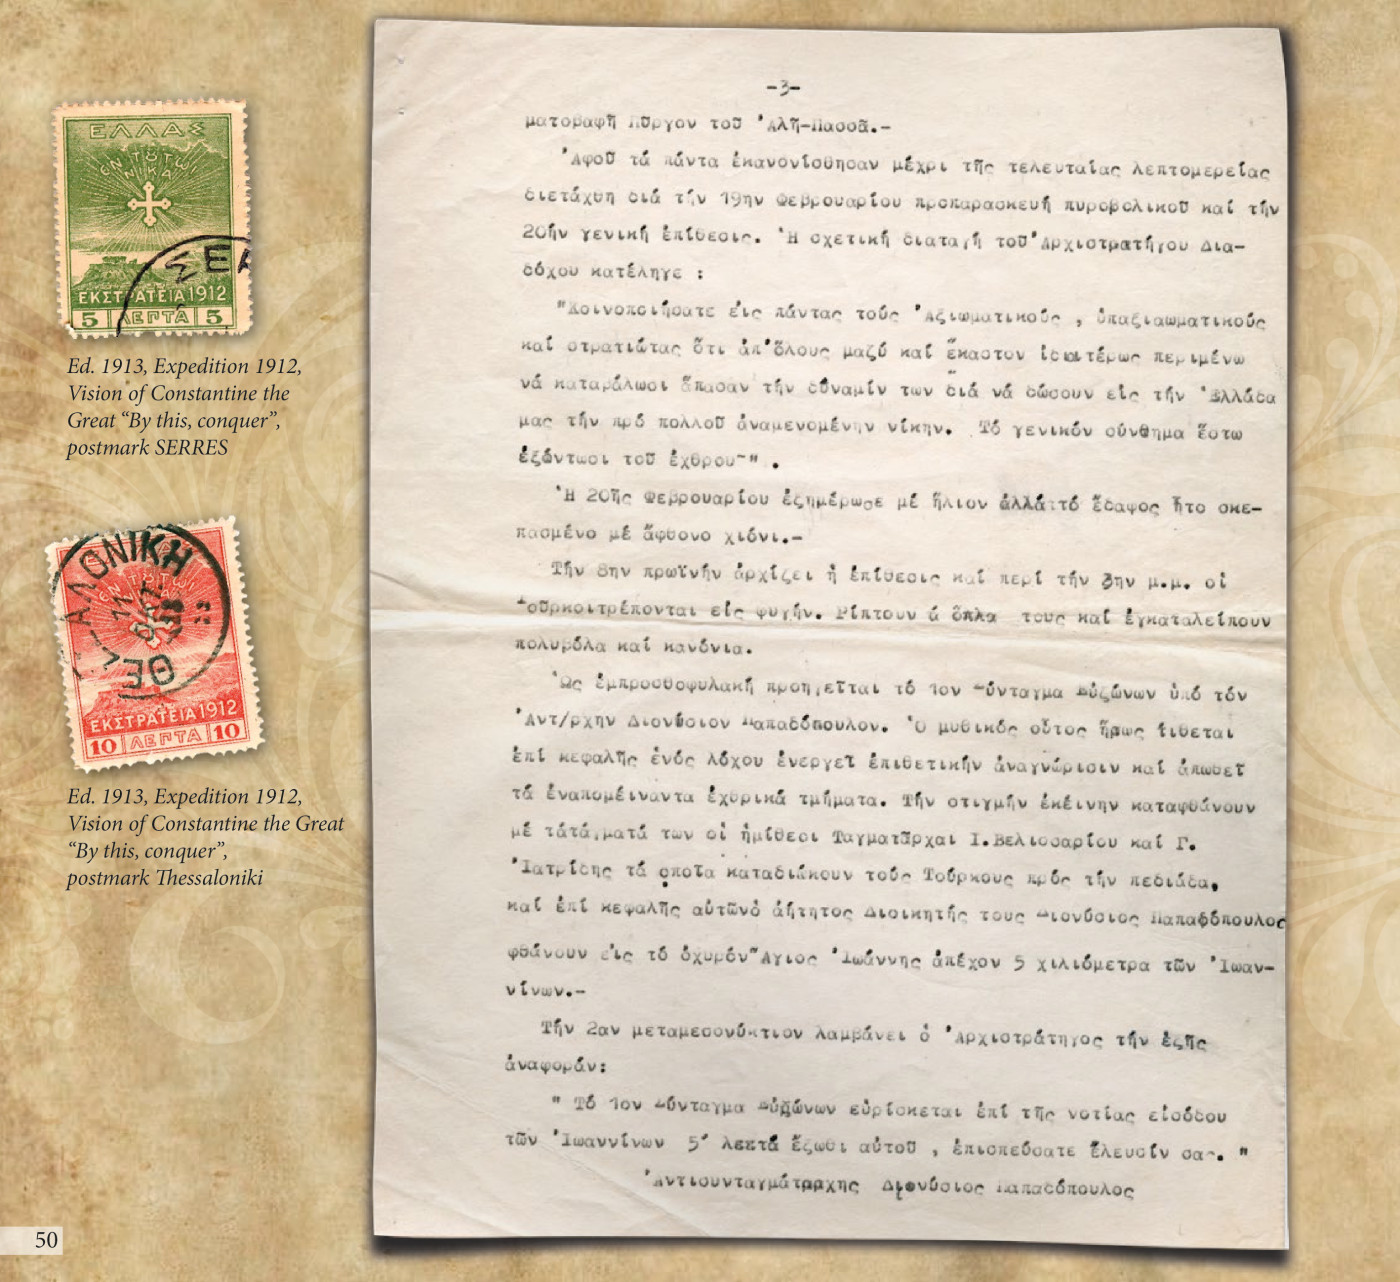 ΕΛΛΑΣ
ΕΝ ΤΟΥΤΩΙ
ΝΙΚΑ
ΣΕΡ
ΕΚΣΤΡΑΤΕΙΑ 1912
5 ΛΕΠΤΑ 5
Ed. 1913, Expedition 1912,
Vision of Constantine the
Great “By this, conquer”,
postmark SERRES
ΘΕΣΣΑΛΟΝΙΚΗ
ΕΝ ΤΟΥΤΩΙ
ΕΚΣΤΡΑΤΕΙΑ 1912
10 ΛΕΠΤΑ 10
Ed. 1913, Expedition 1912,
Vision of Constantine the Great
“By this, conquer”,
postmark Thessaloniki
50
-3-
ματοβαφῆ Πῦργον τοῦ Ἀλῆ-Πασσᾶ.-
Ἀφοῦ τά πάντα ἐκανονίσθησαν μέχρι τῆς τελευταίας λεπτομερείας
διετάχθη διά τήν 19ην Φεβρουαρίου προπαρασκευή πυροβολικοῦ καί τήν
20ήν γενική ἐπίθεσις. Ἡ σχετική διαταγή τοῦ Ἀρχιστρατήγου Δια-
δόχου κατέληγε :
"Κοινοποιήσατε εἰς πάντας τούς Ἀξιωματικούς , ὑπαξιαωματικούς
καί στρατιώτας ὅτι ἀπ'ὅλους μαζύ καί ἕκαστον ἰδιαιτέρως περιμένω
νά καταβάλωσι ἅπασαν τήν δύναμίν των διά νά δώσουν εἰς τήν Ἑλλάδα
μας τήν πρό πολλοῦ ἀναμενομένην νίκην. Τό γενικόν σύνθημα ἔστω
ἐξόντωσι τοῦ ἐχθρου~" .
Ἡ 20ῆς Φεβρουαρίου ἐξημέρωσε μέ ἥλιον ἀλλά τό ἔδαφος ἦτο σκε-
πασμένο μέ ἄφθονο χιόνι.-
Τήν 8ην πρωϊνήν ἀρχίζει ἡ ἐπίθεσις καί περί τήν 3ην μ.μ. οἱ
Τοῦρκοιτρέπονται εἰς φυγήν. Ρίπτουν ά ὅπλα τους καί ἐγκαταλείπουν
πολυβόλα καί κανόνια.
Ὡς ἐμπροσθοφυλακή προηγεῖται τό 1ον Σύνταγμα Εὐζώνων ὑπό τόν
Ἀντ/ρχην Διονύσιον Παπαδόπουλον. Ὁ μυθικός οὗτος ἥρως τίθεται
ἐπί κεφαλῆς ἑνός λόχου ἐνεργεῖ ἐπιθετικήν ἀναγνώρισιν καί ἀπωθεῖ
τά ἐναπομείναντα ἐχθρικά τμήματα. Τήν στιγμήν ἐκείνην καταφθάνουν
μέ τάτάγματά των οἱ ἡμίθεοι Ταγματᾶρχαι Ι.Βελισσαρίου καί Γ.
Ἰατρίδης τά ὁποῖα καταδιώκουν τούς Τούρκους πρός τήν πεδιάδα,
καί ἐπί κεφαλῆς αὐτῶνὁ ἀήτητος Διοικητής τους Διονύσιος Παπαδόπουλος
φθάνουν εἰς τό ὀχυρόν Ἅγιος Ἰωάννης ἀπέχον 5 χιλιόμετρα τῶν Ἰωαν-
νίνων.-
Τήν 2αν μεταμεσονύκτιον λαμβάνει ὁ Ἀρχιστράτηγος τήν ἑξῆς
ἀναφοράν:
" Τό 1ον Σύνταγμα Εὐζώνων εὑρίσκεται ἐπί τῆς νοτίας εἰσόδου
τῶν Ἰωαννίνων 5' λεπτά ἔξωθι αὐτοῦ , ἐπισπεύσατε ἔλευσίν σας. "
Ἀντισυνταγμάτρρχης Διονύσιος Παπαδόπουλος